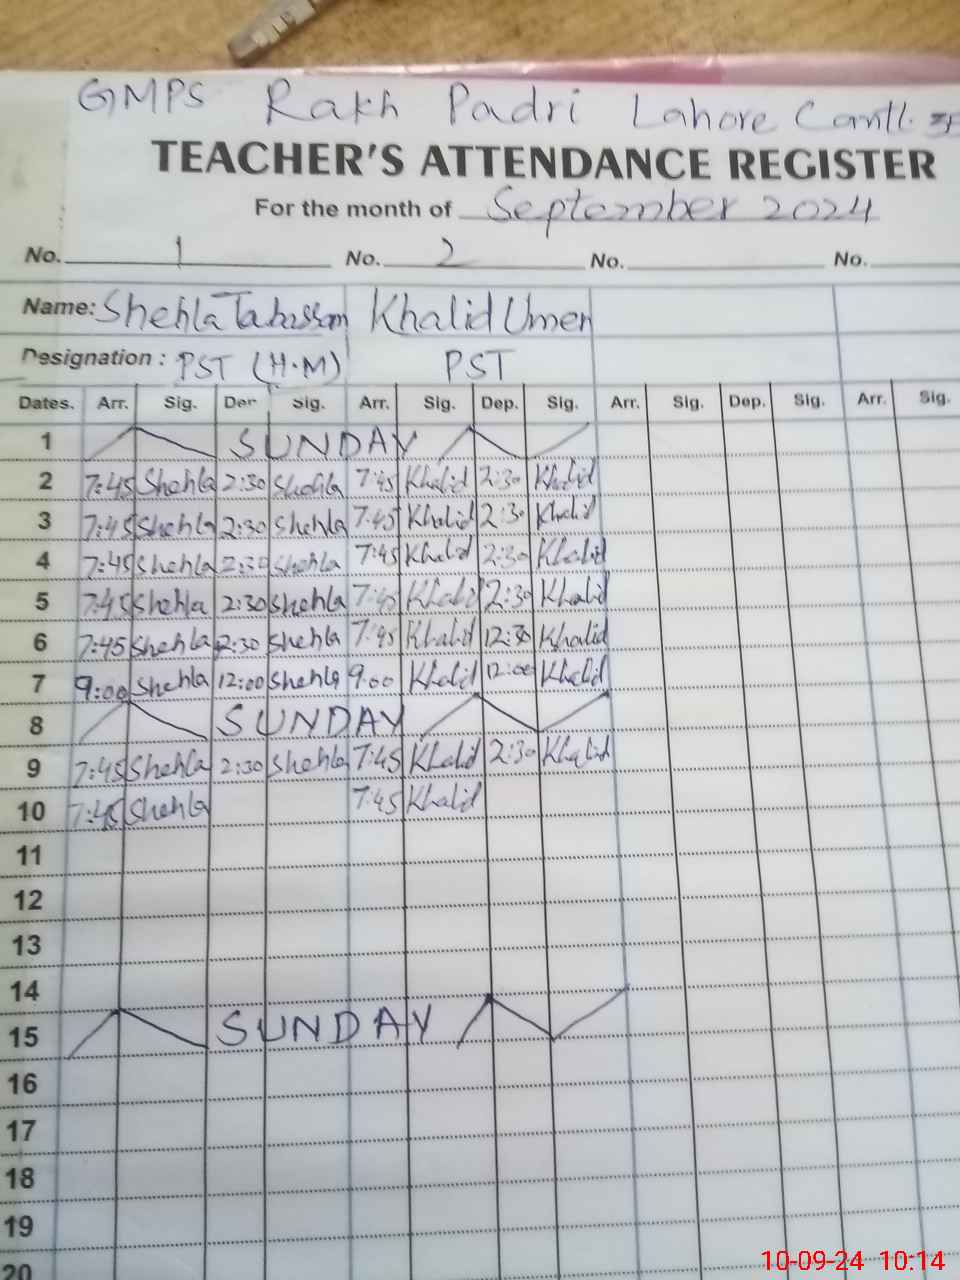 GMPS Rakh Padri Lahore Cantt.
TEACHER'S ATTENDANCE REGISTER
For the month of September 2024
No. 1 No. 2 No. No.
Name: Shehla Tabassam Khalid Umer
Designation : PST (H.M) PST
Dates. Arr. Sig. Der Sig. Arr. Sig. Dep. Sig. Arr. Sig. Dep. Sig. Arr. Sig.
1 SUNDAY
2 7:45 Shehla 2:30 Shehla 7:45 Khalid 2:30 Khalid
3 7:45 Shehla 2:30 Shehla 7:45 Khalid 2:30 Khalid
4 7:45 Shehla 2:30 Shehla 7:45 Khalid 2:30 Khalid
5 7:45 Shehla 2:30 Shehla 7:45 Khalid 2:30 Khalid
6 7:45 Shehla 12:30 Shehla 7:45 Khalid 12:30 Khalid
7 9:00 Shehla 12:00 Shehla 9:00 Khalid 12:00 Khalid
8 SUNDAY
9 7:45 Shehla 2:30 Shehla 7:45 Khalid 2:30 Khalid
10 7:45 Shehla 7:45 Khalid
11
12
13
14
15 SUNDAY
16
17
18
19
20
10-09-24 10:14